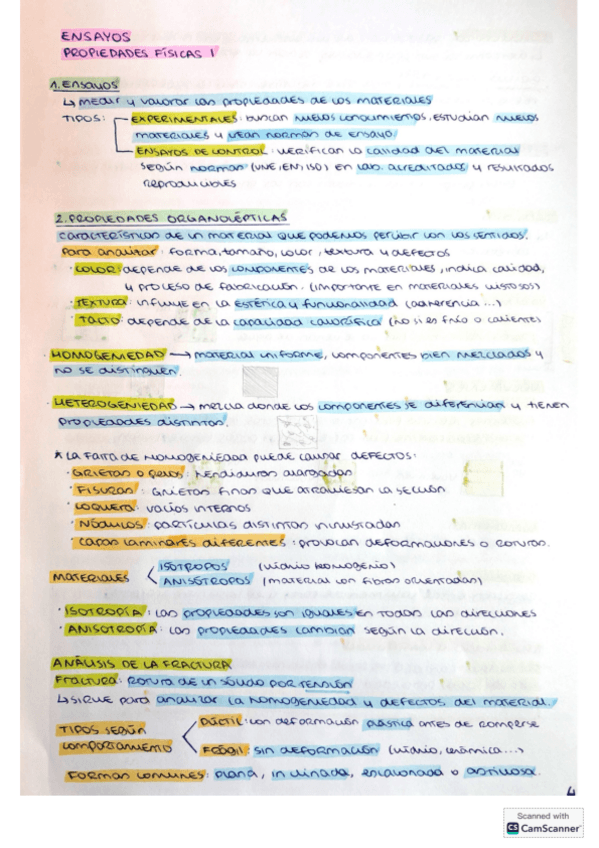 ENSAYOS
PROPIEDADES FÍSICAS I
1. ENSAYOS
↳ MEDIR Y VALORAR LAS PROPIEDADES DE LOS MATERIALES
TIPOS: EXPERIMENTALES: BUSCAN NUEVOS CONOCIMIENTOS, ESTUDIAN NUEVOS
MATERIALES Y CREAN NORMAS DE ENSAYO
ENSAYOS DE CONTROL: VERIFICAN LA CALIDAD DEL MATERIAL
SEGÚN NORMAS (UNE, EN, ISO) EN LAB. ACREDITADOS Y RESULTADOS
REPRODUCIBLES
2. PROPIEDADES ORGANOLÉPTICAS
CARACTERÍSTICAS DE UN MATERIAL QUE PODEMOS PERCIBIR CON LOS SENTIDOS.
PARA ANALIZAR: FORMA, TAMAÑO, COLOR, TEXTURA Y DEFECTOS
· COLOR: DEPENDE DE LOS COMPONENTES DE LOS MATERIALES, INDICA CALIDAD,
Y PROCESO DE FABRICACIÓN. (IMPORTANTE EN MATERIALES VISTOSOS)
· TEXTURA: INFLUYE EN LA ESTÉTICA Y FUNCIONALIDAD (ADHERENCIA...)
· TACTO: DEPENDE DE LA CAPACIDAD CALORÍFICA (NO SI ES FRÍO O CALIENTE)
· HOMOGENIEDAD → MATERIAL UNIFORME, COMPONENTES BIEN MEZCLADOS Y
NO SE DISTINGUEN.
· HETEROGENIEDAD → MEZCLA DONDE LOS COMPONENTES SE DIFERENCIAN Y TIENEN
PROPIEDADES DISTINTAS.
* LA FALTA DE HOMOGENIEDAD PUEDE CAUSAR DEFECTOS:
· GRIETAS O PELOS: HENDIDURAS ALARGADAS
· FISURAS: GRIETAS FINAS QUE ATRAVIESAN LA SECCIÓN
· COQUERA: VACÍOS INTERNOS
· NÓDULOS: PARTÍCULAS DISTINTAS INCRUSTADAS
· CAPAS LAMINARES DIFERENTES: PROVOCAN DEFORMACIONES O ROTURAS.
MATERIALES < ISÓTROPOS (VIDRIO HOMOGÉNIO)
ANISÓTROPOS (MATERIAL CON FIBRAS ORIENTADAS)
· ISOTROPÍA: LAS PROPIEDADES SON IGUALES EN TODAS LAS DIRECCIONES
· ANISOTROPÍA: LAS PROPIEDADES CAMBIAN SEGÚN LA DIRECCIÓN.
ANÁLISIS DE LA FRACTURA
FRACTURA: ROTURA DE UN SÓLIDO POR TENSIÓN
↳ SIRVE PARA ANALIZAR LA HOMOGENIEDAD Y DEFECTOS DEL MATERIAL.
TIPOS SEGÚN COMPORTAMIENTO < DÚCTIL: CON DEFORMACIÓN PLÁSTICA ANTES DE ROMPERSE
FRÁGIL: SIN DEFORMACIÓN (VIDRIO, CERÁMICA...)
FORMAS COMUNES: PLANA, INCLINADA, ESCALONADA O ASTILLOSA.
4
Scanned with
CS CamScanner